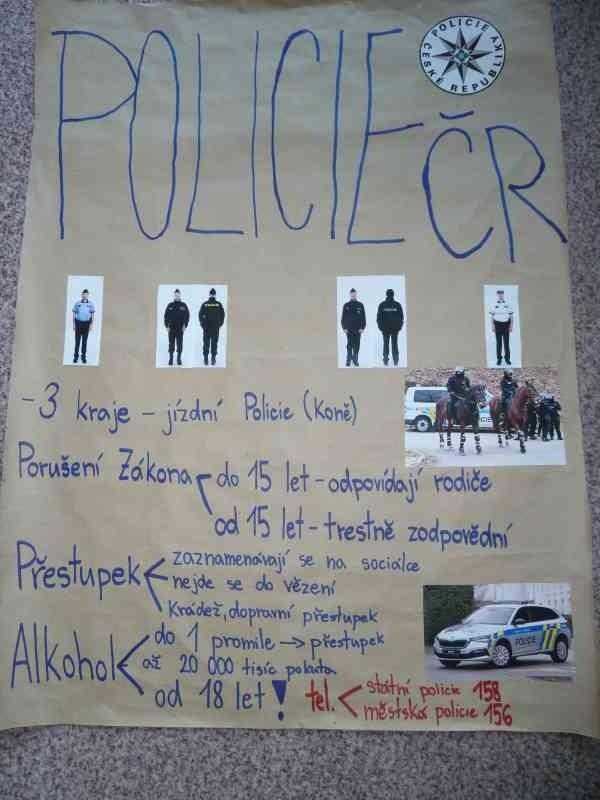 POLICIE ČR
POLICIE ČESKÉ REPUBLIKY
-3 kraje - jízdní Policie (Koně)
POLICIE
Porušení Zákona
do 15 let - odpovídají rodiče
od 15 let - trestně zodpovědní
Přestupek
zaznamenávají se na sociálce
nejde se do vězení
Krádež, dopravní přestupek
Alkohol
do 1 promile → přestupek
až 20 000 tisíc pokuta
od 18 let!
POLICIE
tel.
státní policie 158
městská policie 156